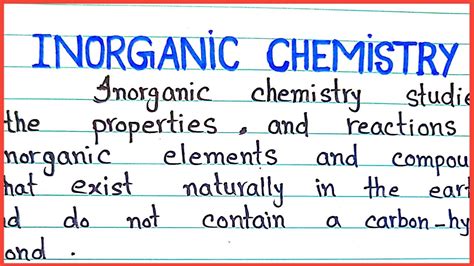 INORGANIC CHEMISTRY
Inorganic chemistry studie
the properties , and reactions
norganic elements and compou
hat exist naturally in the eart
d do not contain a carbon-hy
ond .